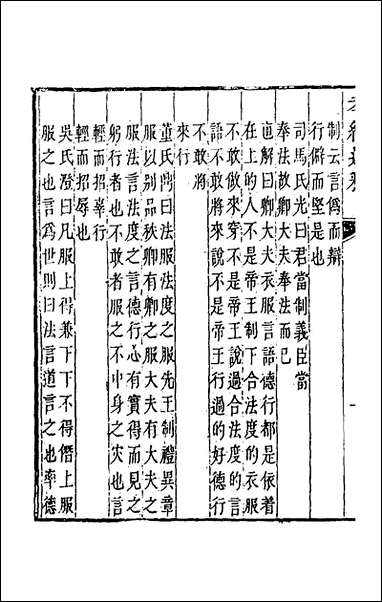 制云言偽而辯
行僻而堅是也
司馬氏光曰君當制義臣當
奉法故卿大夫奉法而已
直解曰卿大夫衣服言語德行都是依着
在上的人不是帝王制下合法度的衣服
不敢做來穿不是帝王說過合法度的言
語不敢將來說不是帝王行過的好德行
不敢將
來行
董氏鼎曰法服法度之服先王制禮異章
服以别品秩卿有卿之服大夫有大夫之
服法言法度之言德行心有實得而見之
躬行者也不敢者服之不中身之災也言
輕而招辜行
輕而招辱也
吳氏澄曰凡服上得兼下下不得僭上服
服之也言爲世則曰法言道言之也率德